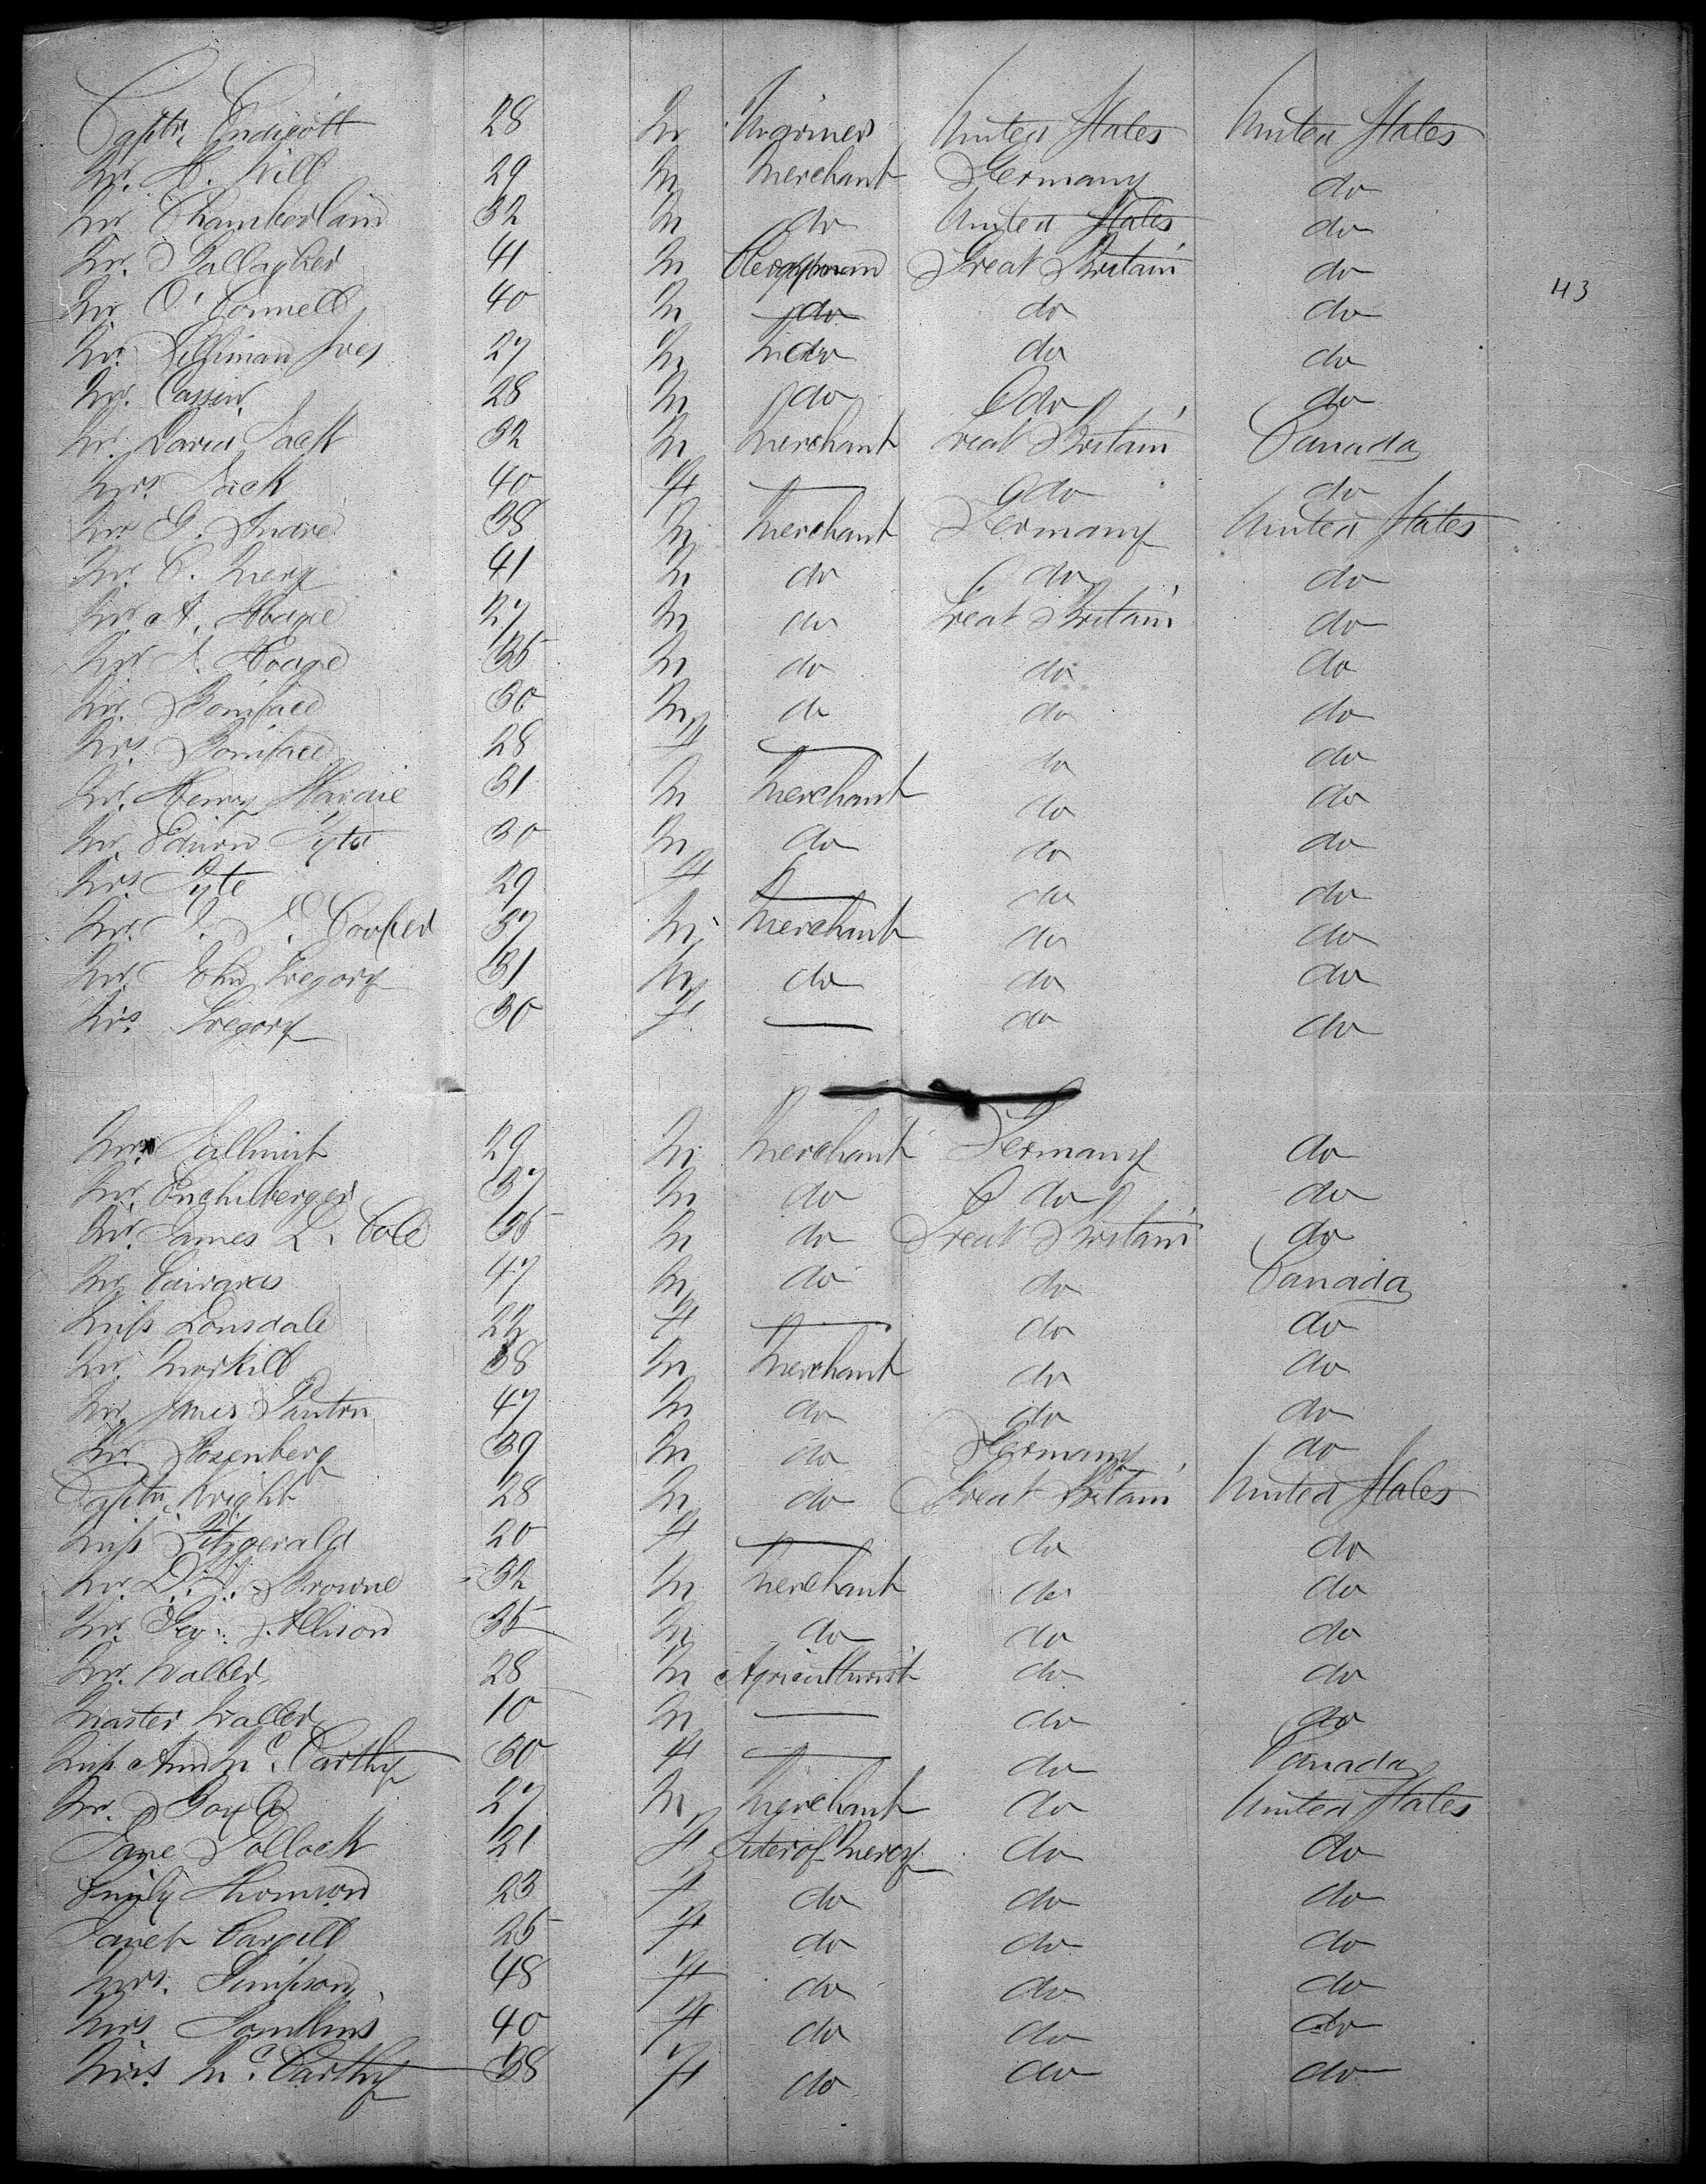 Captn Endicott 28 M Mariner United States United States
Mr. H. Will 29 M Merchant Germany do
Mr Chamberlain 32 M do United States do
Mr. Gallagher 41 M Clergyman Great Britain do
Mr O'Connell 40 M do do do
43
Mr. Silliman Ives 27 M do do do
Mr. Cassin 28 M do do do
Mr. David Jack 32 M Merchant Great Britain Canada
Mrs. Jack 40 F — do do
Mr G. Andre 38 M Merchant Germany United States
Mr. C. Merz 41 M do do do
Mr A. Hoague 27 M do Great Britain do
Mr J. Hoague 35 M do do do
Mr. Boniface 30 M do do do
Mrs. Boniface 28 F — do do
Mr. Henry Hardie 31 M Merchant do do
Mr. Edwin Fyte 30 M do do do
Mrs Fyte 29 F — do do
Mr. J. Cooper 37 M Merchant do do
Mr. John Gregory 31 M do do do
Mrs. Gregory 30 F — do do
Mr. 29 M Merchant Germany do
Mr. 37 M do do do
Mr. James L. Cole 35 M do Great Britain do
Mr. Cairaxes 47 M do do Canada
Miss Lonsdale 22 F — do do
Mr. Morkill 38 M Merchant do do
Mr. James Panton 47 M do do do
Mr. Rosenberg 39 M do Germany do
Captn Wright 28 M do Great Britain United States
Miss Fitzgerald 20 F — do do
Mr. D. Browne 32 M Merchant do do
Mr. Geo. Allison 35 M do do do
Mr. Waller 28 M Agriculturist do do
Master Waller 10 M — do do
Miss Ann McCarthy 30 F — do Canada
Mr. Boyle 27 M Merchant do United States
Jane Pollock 21 F Sister of Mercy do do
Emily Thomson 23 F do do do
Janet Cargill 25 F do do do
Mrs. Simpson 48 F do do do
Mrs Tomlins 40 F do do do
Mrs. McCarthy 38 F do do do